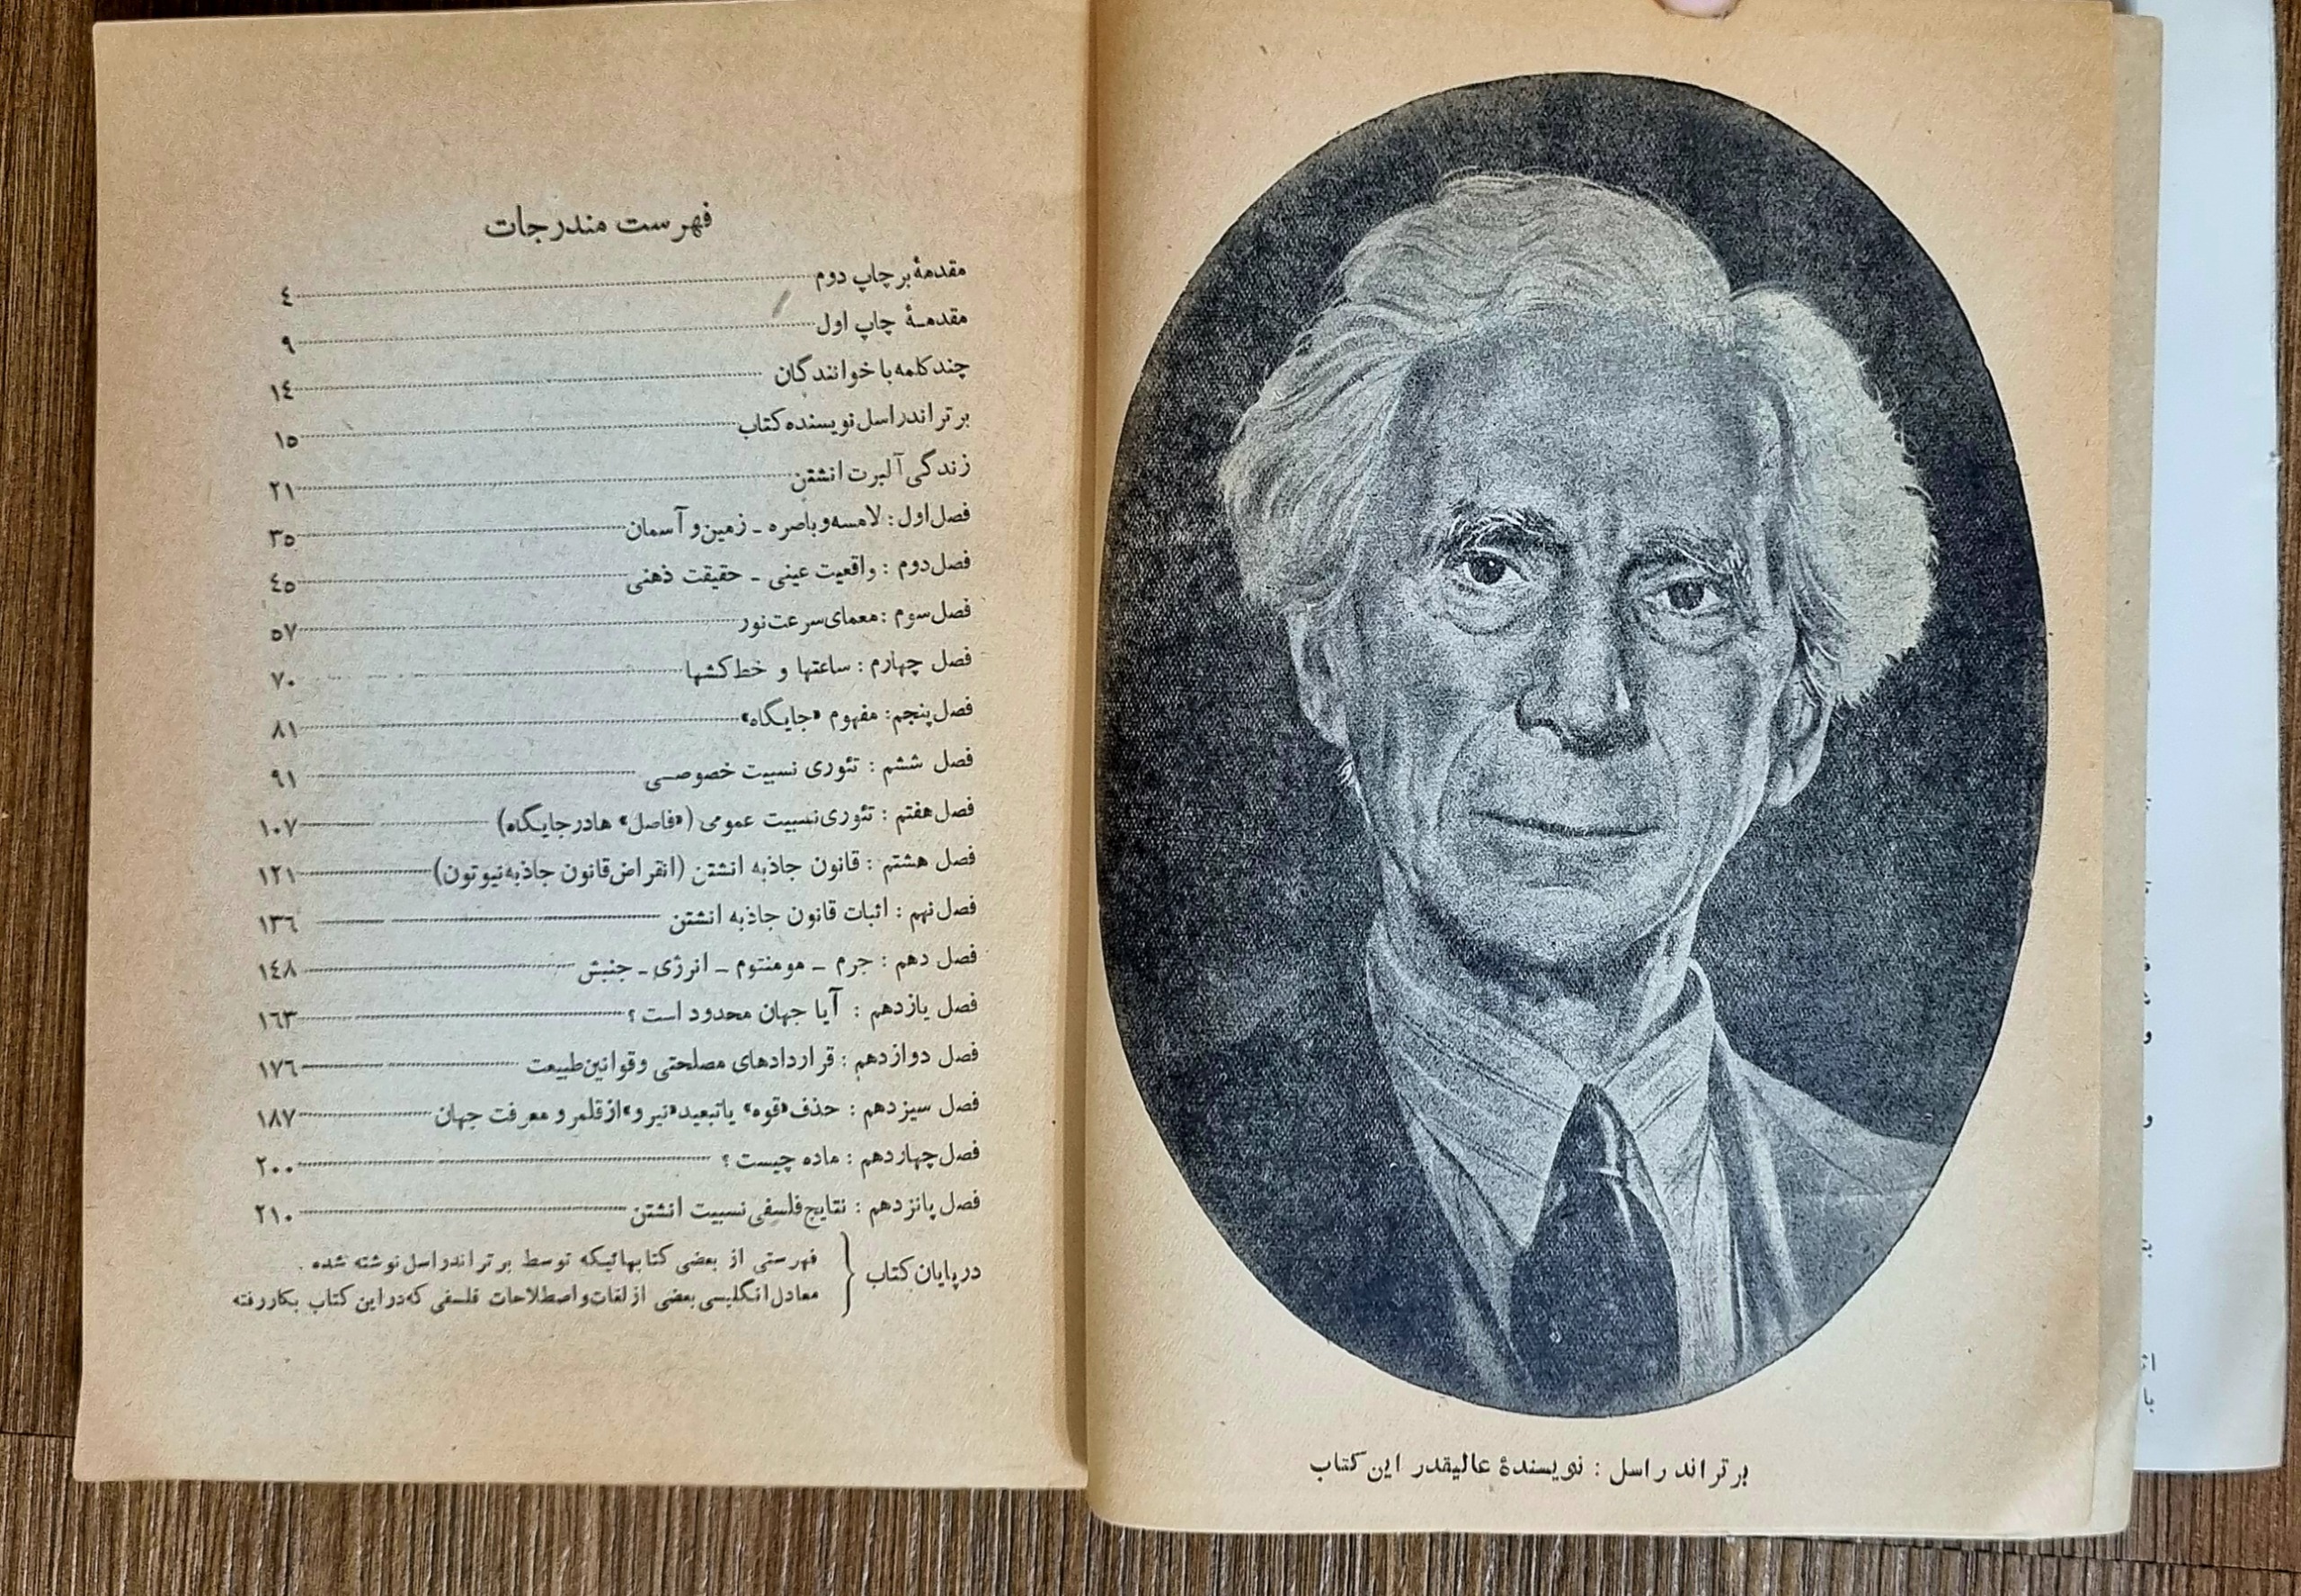 برتراند راسل : نویسندهٔ عالیقدر این کتاب
فهرست مندرجات
مقدمهٔ بر چاپ دوم ٤
مقدمـهٔ چاپ اول ٩
چند کلمه با خوانندگان ١٤
برتراندراسل نویسنده کتاب ١٥
زندگی آلبرت انشتن ٢١
فصل اول : لامسه و باصره ـ زمین و آسمان ٣٥
فصل دوم : واقعیت عینی ـ حقیقت ذهنی ٤٥
فصل سوم : معمای سرعت نور ٥٧
فصل چهارم : ساعتها و خط‌کشها ٧٠
فصل پنجم : مفهوم «جایگاه» ٨١
فصل ششم : تئوری نسبیت خصوصـی ٩١
فصل هفتم : تئوری نسبیت عمومی («فاصل» ها در جایگاه) ١٠٧
فصل هشتم : قانون جاذبه انشتن (انقراض قانون جاذبه نیوتون) ١٢١
فصل نهم : اثبات قانون جاذبه انشتن ١٣٦
فصل دهم : جرم ـ مومنتوم ـ انرژی ـ جنبش ١٤٨
فصل یازدهم : آیا جهان محدود است ؟ ١٦٣
فصل دوازدهم : قراردادهای مصلحتی و قوانین طبیعت ١٧٦
فصل سیزدهم : حذف «قوه» یا تبعید «نیرو» از قلمرو معرفت جهان ١٨٧
فصل چهاردهم : ماده چیست ؟ ٢٠٠
فصل پانزدهم : نتایج فلسفی نسبیت انشتن ٢١٠
در پایان کتاب { فهرستی از بعضی کتابهائیکه توسط برتراندراسل نوشته شده .
معادل انگلیسی بعضی از لغات و اصطلاحات فلسفی که در این کتاب بکار رفته